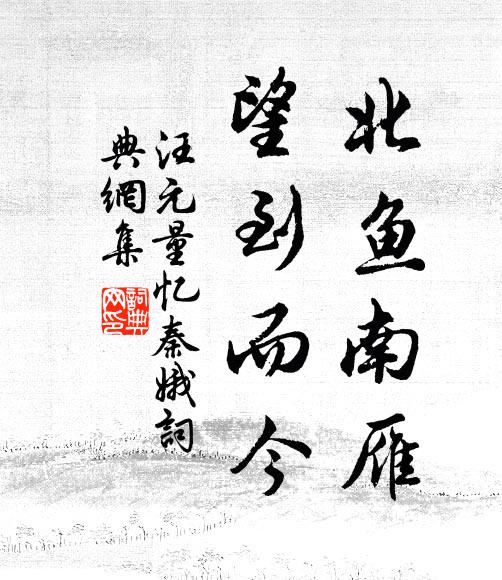 北鱼南雁
望到而今
汪元量忆秦娥詞
典網集
詞典网印